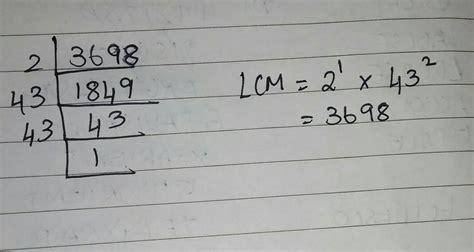 2 | 3698
43 | 1849
43 | 43
1
LCM = 2¹ × 43²
= 3698